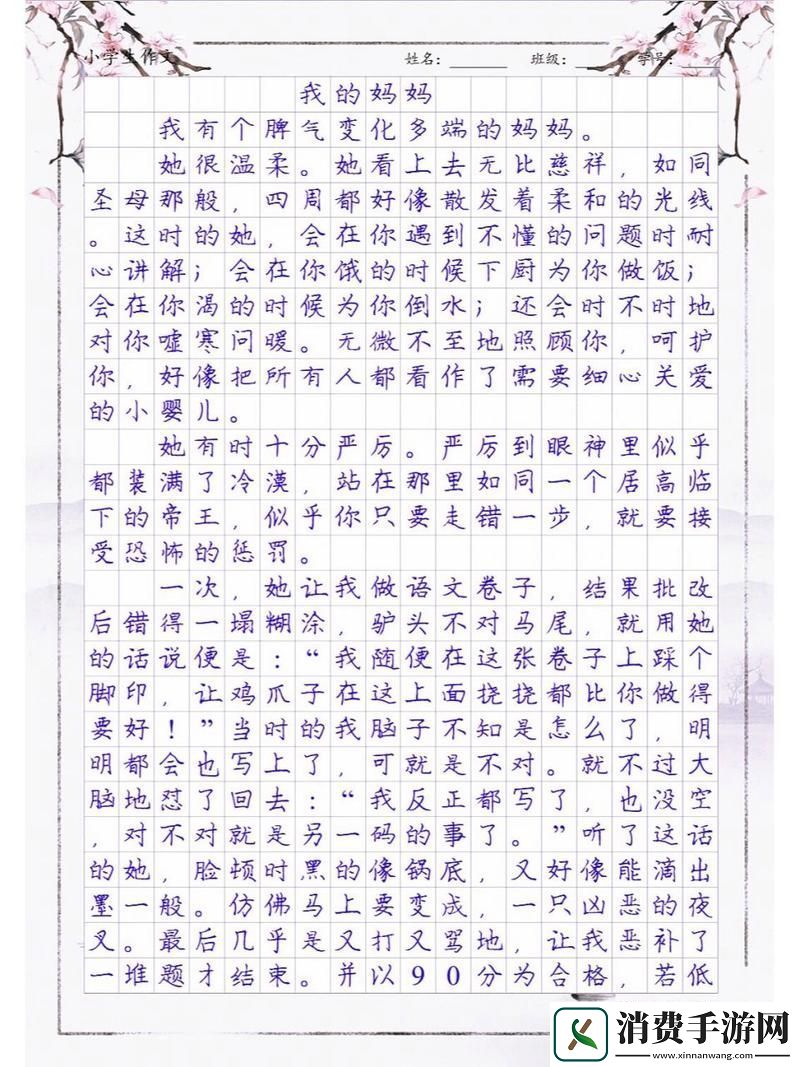 小学生作文
姓名：
班级：
学号：
我的妈妈
我有个脾气变化多端的妈妈。
她很温柔。她看上去无比慈祥，如同
圣母那般，四周都好像散发着柔和的光线
。这时的她，会在你遇到不懂的问题时耐
心讲解；会在你饿的时候下厨为你做饭；
会在你渴的时候为你倒水；还会时不时地
对你嘘寒问暖。无微不至地照顾你，呵护
你，好像把所有人都看作了需要细心关爱
的小婴儿。
她有时十分严厉。严厉到眼神里似乎
都装满了冷漠，站在那里如同一个居高临
下的帝王，似乎你只要走错一步，就要接
受恐怖的惩罚。
一次，她让我做语文卷子，结果批改
后错得一塌糊涂，驴头不对马尾，就用她
的话说便是：“我随便在这张卷子上踩个
脚印，让鸡爪子在这上面挠挠都比你做得
要好！”当时的我脑子不知是怎么了，明
明都会也写上了，可就是不对。就不过大
脑地怼了回去：“我反正都写了，也没空
，对不对就是另一码的事了。”听了这话
的她，脸顿时黑的像锅底，又好像能滴出
墨一般。仿佛马上要变成，一只凶恶的夜
叉。最后几乎是又打又骂地，让我恶补了
一堆题才结束。并以90分为合格，若低
消费手游网
www.xinnanwang.com